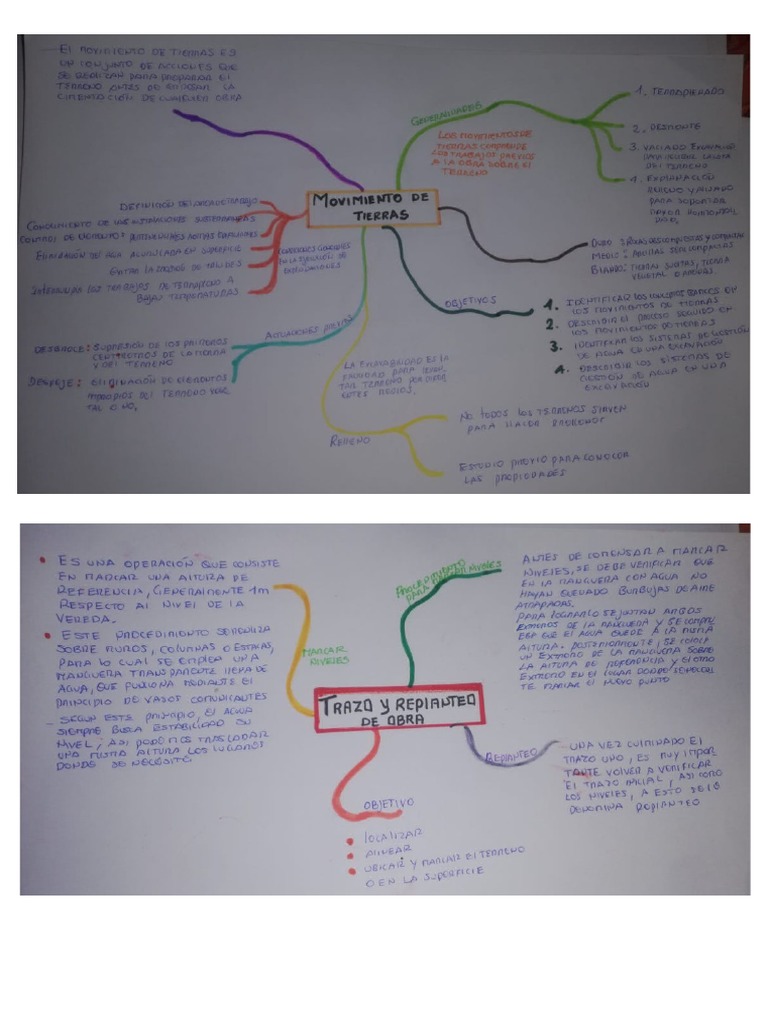 - El movimiento de tierras es
un conjunto de acciones que
se realizan para preparar el
terreno antes de empezar la
cimentación de cualquier obra
Generalidades
Los movimientos de
tierras comprende
los trabajos previos
a la obra sobre el
terreno
1. Terraplenado
2. Desmonte
3. Vaciado Excavación
del terreno
4. Explanación
relleno y vaciado
para soportar
mayor horizontal
Movimiento de
tierras
Definición del área de trabajo
Conocimiento de las instalaciones subterráneas
Eliminación del agua acumulada en superficie
Evitar la erosión de taludes
Interrumpir los trabajos de terrapleno a
bajas temperaturas
Condiciones generales
en la ejecución de
explanaciones
Duro: rocas descompuestas y compactas
Medio: arcillas semicompactas
Blando: tierras sueltas, tierra
vegetal o arenas.
Objetivos
1. Identificar los conceptos básicos en
los movimientos de tierras
2. Describir el proceso seguido en
los movimientos de tierras
3. Identificar los sistemas de gestión
de agua en una excavación
4. Describir los sistemas de
gestión de agua en una
excavación
Actuaciones previas
Desbroce: Supresión de los primeros
centímetros de la tierra
y del terreno
Despeje: eliminación de elementos
impropios del terreno vege
tal o no.
La excavabilidad es la
facilidad para
terreno por
medios.
Relleno
No todos los terrenos sirven
para hacer rellenos
Estudio previo para conocer
las propiedades
• Es una operación que consiste
en marcar una altura de
referencia, generalmente 1m
respecto al nivel de la
vereda.
• Este procedimiento se realiza
sobre muros, columnas o estacas,
para lo cual se emplea una
manguera transparente llena de
agua, que funciona mediante el
principio de vasos comunicantes
- Según este principio, el agua
siempre busca estabilidad su
nivel, así podemos trasladar
una misma altura los lugares
donde se necesite
Marcar
niveles
Procedimiento
para marcar niveles
Antes de comenzar a marcar
niveles, se debe verificar que
en la manguera con agua no
hayan quedado burbujas de aire
atrapadas.
Para lograrlo se juntan ambos
extremos de la manguera y se comprue
eba que el agua quede a la misma
altura. Posteriormente, se coloca
un extremo de la manguera sobre
la altura de referencia y el otro
extremo en el lugar donde se
marcar el nuevo punto
Trazo y replanteo
de obra
Replanteo
- Una vez culminado el
trazo uno, es muy impor
tante volver a verificar
el trazo inicial, así como
los niveles, a esto se le
denomina replanteo
Objetivo
• localizar
• alinear
• ubicar y marcar el terreno
o en la superficie